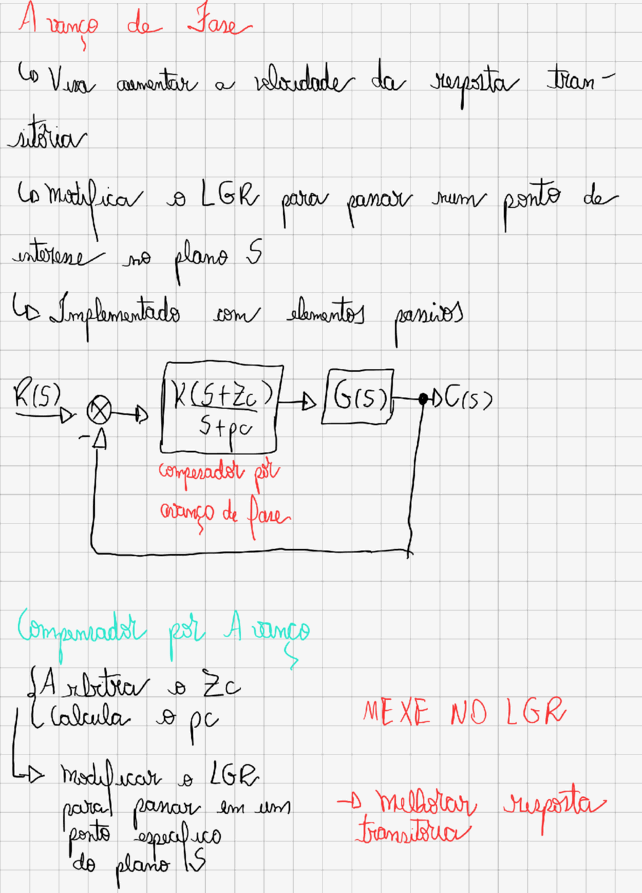 Avanço de Fase
↳ Visa aumentar a velocidade da resposta tran-
sitória
↳ Modifica o LGR para passar num ponto de
interesse no plano S
↳ Implementado com elementos passivos
R(S)
K(S+Zc)
S+pc
G(S)
C(S)
-
compesador por
avanço de fase
Compensador por Avanço
Arbitra o Zc
Calcula o pc
MEXE NO LGR
→ Modificar o LGR
para passar em um
ponto específico
do plano S
→ Melhorar resposta
transitória